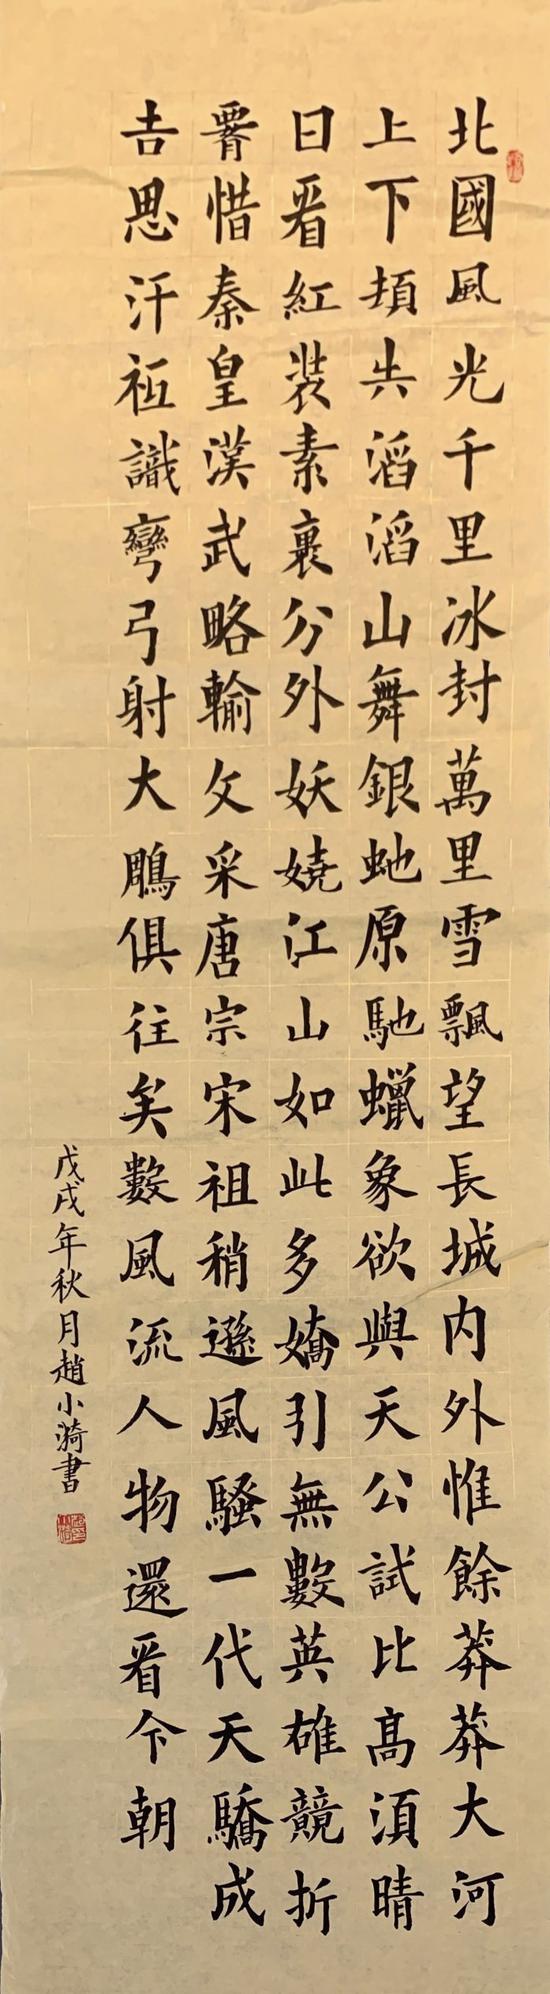 北國風光千里冰封萬里雪飄望長城内外惟餘莽莽大河
上下頓失滔滔山舞銀虵原馳蠟象欲與天公試比高須晴
日看紅裝素裹分外妖嬈江山如此多嬌引無數英雄競折
腰惜秦皇漢武略輸文采唐宗宋祖稍遜風騷一代天驕成
吉思汗祗識彎弓射大鵰俱往矣數風流人物還看今朝
戊戌年秋月趙小漪書